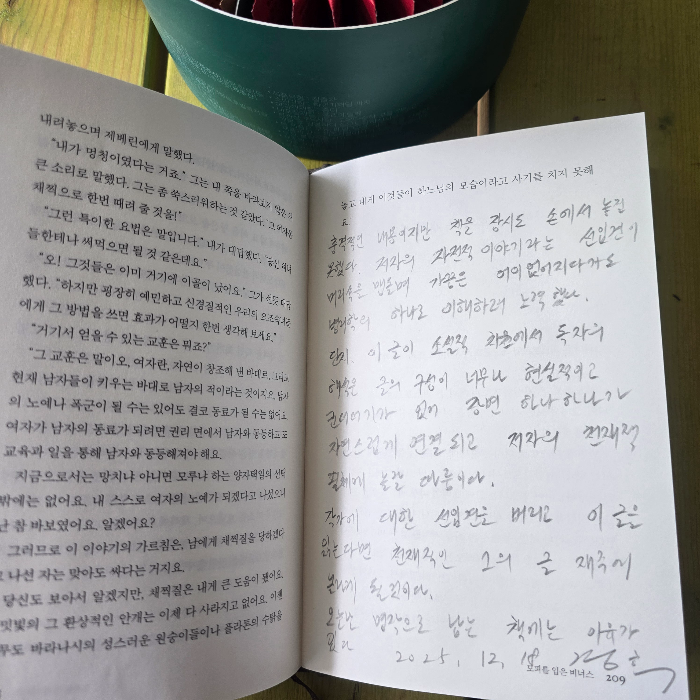 내려놓으며 제베린에게 말했다.
"내가 멍청이였다는 거죠." 그는 내 쪽을
큰 소리로 말했다. 그는 좀 쑥스러워하는 것 같았다.
채찍으로 한번 때려 줄 것을!"
"그런 특이한 요법은 말입니다." 내가 대답했다.
들한테나 써먹으면 될 것 같은데요."
"오! 그것들은 이미 거기에 이골이 났어요." 그가
했다. "하지만 굉장히 예민하고 신경질적인 우리의
에게 그 방법을 쓰면 효과가 어떨지 한번 생각해 보세요."
"거기서 얻을 수 있는 교훈은 뭐죠?"
"그 교훈은 말이오, 여자란, 자연이 창조해 낸 바대로,
현재 남자들이 키우는 바대로 남자의 적이라는 것이지요.
의 노예나 폭군이 될 수는 있어도 결코 동료가 될 수는 없어요.
여자가 남자의 동료가 되려면 권리 면에서 남자와 동등하고 또
교육과 일을 통해 남자와 동등해져야 해요.
지금으로서는 망치냐 아니면 모루냐 하는 양자택일의 선택
밖에는 없어요. 내 스스로 여자의 노예가 되겠다고 나섰으니
난 참 바보였어요. 알겠어요?
그러므로 이 이야기의 가르침은, 남에게 채찍질을 당하겠다
고 나선 자는 맞아도 싸다는 거지요.
당신도 보아서 알겠지만, 채찍질은 내게 큰 도움이 됐어요.
밋빛의 그 환상적인 안개는 이제 다 사라지고 없어요. 이젠
무도 바라나시의 성스러운 원숭이들이나 플라톤의 수탉을
놓고 내게 이것들이 하느님의 모습이라고 사기를 치지 못해
요
충격적인 내용이지만 책을 잠시도 손에서 놓질
못했다. 저자의 자전적 이야기라는 선입견이
머릿속을 맴돌며 가끔은 어이없어지다가도
하나로 이해하려 노력했다.
단지, 이 글이 소설적 차원에서 독자의
해석은 글의 구성이 너무나 현실적이고
군더더기가 없어 장면 하나하나가
자연스럽게 연결되고 저자의 천재적
필체에 놀랄 따름이다.
각각에 대한 선입견을 버리고 이 글을
읽는다면 천재적인 그의 글 재주에
놀라게 될 것이다.
오늘날 명작으로 남는 책에는 이유가
있다
2025. 12. 18
모피를 입은 비너스 209